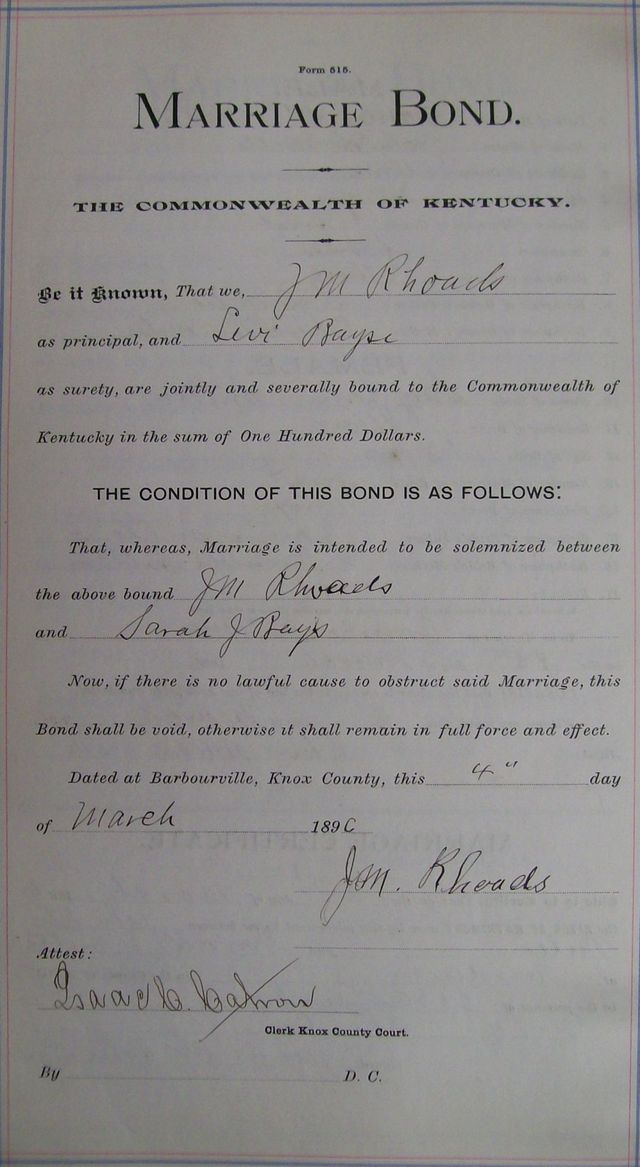 Form 515.
MARRIAGE BOND.
THE COMMONWEALTH OF KENTUCKY.
Be it Known, That we, J M Rhoads
as principal, and Levi Bayse
as surety, are jointly and severally bound to the Commonwealth of
Kentucky in the sum of One Hundred Dollars.
THE CONDITION OF THIS BOND IS AS FOLLOWS:
That, whereas, Marriage is intended to be solemnized between
the above bound J M Rhoads
and Sarah J Bays
Now, if there is no lawful cause to obstruct said Marriage, this
Bond shall be void, otherwise it shall remain in full force and effect.
Dated at Barbourville, Knox County, this 4" day
of March 1896
J M. Rhoads
Attest:
Isaac C. Catron
Clerk Knox County Court.
By D. C.